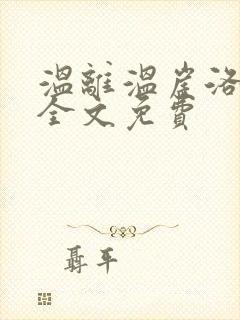 温離温崖洛
全文免費
聶平